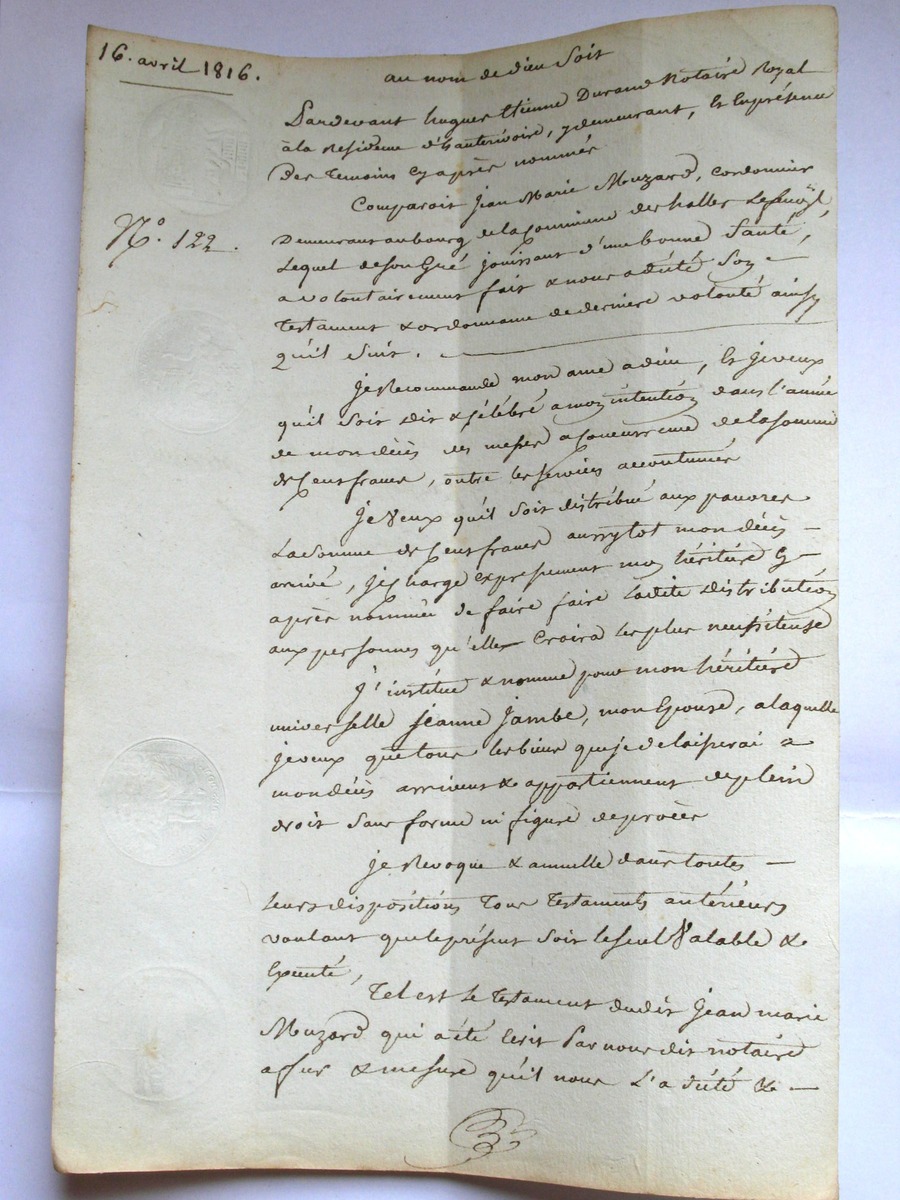 16. avril 1816.
au nom de dieu soit
Pardevant hugues Etienne Durand Notaire Royal
à la Residence d'hauterivoire, y demeurant, Et En présence
des temoins cy après nommés
N.° 122.
Comparoit Jean Marie Muzard, cordonnier
Demeurant au bourg de la commune des halles
Lequel de son Gré jouissant d'une bonne Santé,
a volontairement fait & nous a dicté Son
testament & ordonnance de derniere volonté ainsy
qu'il suit.
je Recommande mon ame a dieu, Et je veux
qu'il soit dit & célébré a mon intention dans l'année
de mon décès des messes a concurrence de la somme
de Cent francs, outre les services accoutumés
je Veux qu'il soit distribué aux pauvres
La somme de Cent francs aussytot mon décès
arrivé, je charge expressement mon héritière Cy
après nommée de faire faire ladite distribution
aux personnes qu'elle Croira les plus necessiteuse
J'institue & nomme pour mon héritière
universelle jeanne jambe, mon Epouse, a laquelle
je veux que tous les biens que je delaisserai a
mon décès arrivent & appartiennent de plein
droit sans forme ni figure de procès
je Revoque & annulle dans toutes
leurs dispositions tous testaments antérieurs
voulant que le présent soit le seul Valable &
Executé,
Tel est le testament dudit jean marie
Muzard qui a été Ecrit Par nous dit notaire
a fur & mesure qu'il nous L'a dicté &